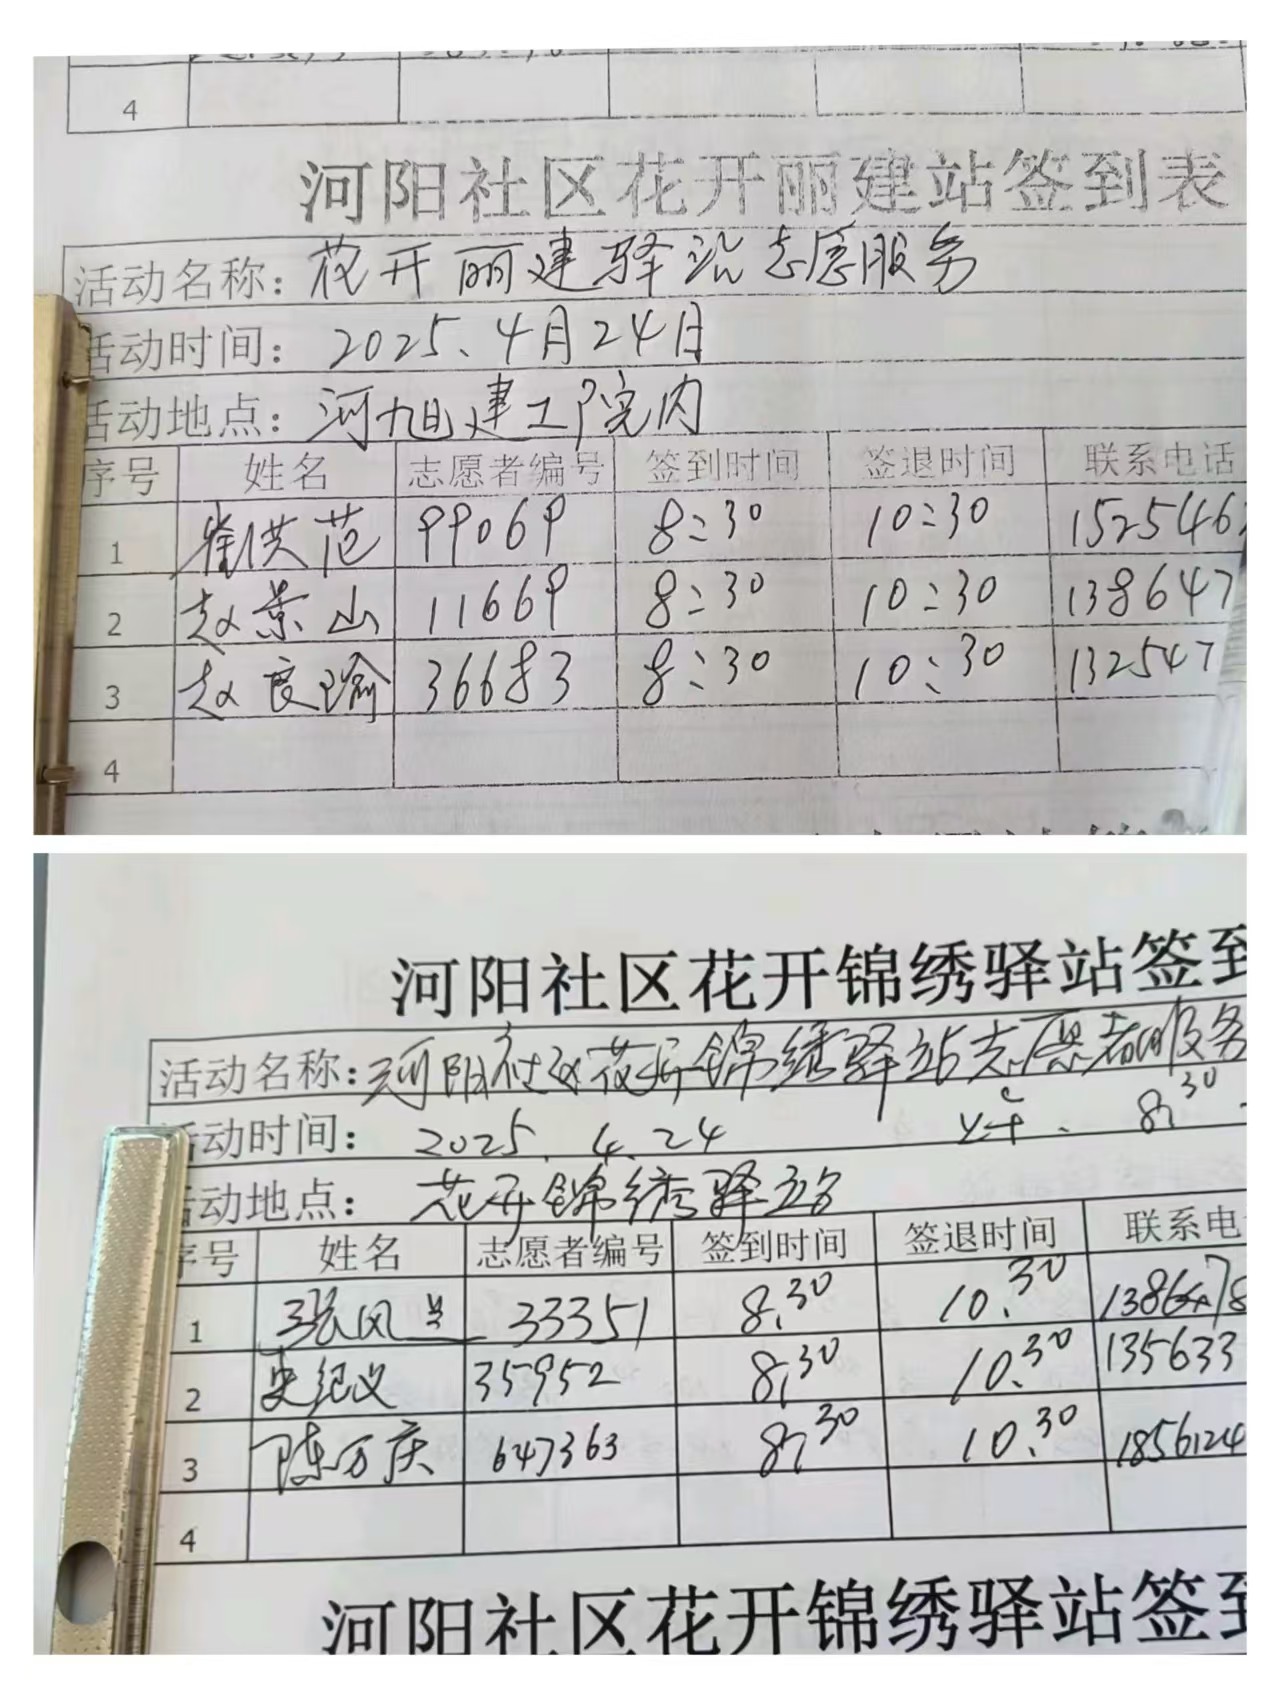 4
河阳社区花开丽建站签到表
活动名称：花开丽建驿站志愿服务
活动时间：2025.4月24日
活动地点：河旭建工厂院内
序号 姓名 志愿者编号 签到时间 签退时间 联系电话
1 崔洪范 99069 8:30 10:30 1525462
2 赵景山 11669 8:30 10:30 138647
3 赵良瑜 36683 8:30 10:30 132547
4
河阳社区花开锦绣驿站签到
活动名称：河阳社区花开锦绣驿站志愿者服务
活动时间：2025.4.24 8:30
活动地点：花开锦绣驿站
序号 姓名 志愿者编号 签到时间 签退时间 联系电
1 张风 33351 8:30 10:30
2 史纪义 35952 8:30 10:30 135633
3 陈万庆 647363 8:30 10:30 1856124
4
河阳社区花开锦绣驿站签到